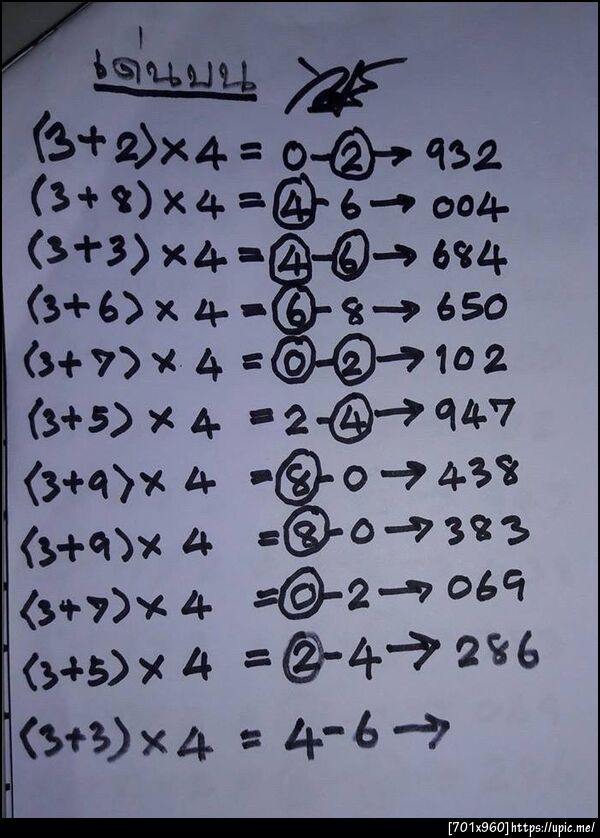 เด่นบน
(3+2)×4 = 0-2→ 932
(3+8)×4 = 4-6 → 004
(3+3)×4 = 4-6→ 684
(3+6)×4 = 6-8→ 650
(3+7)×4 = 0-2→ 102
(3+5)×4 = 2-4→ 947
(3+9)×4 = 8-0→ 438
(3+9)×4 = 8-0→ 383
(3+7)×4 = 0-2→ 069
(3+5)×4 = 2-4→ 286
(3+3)×4 = 4-6→
[701x960]https://upic.me/